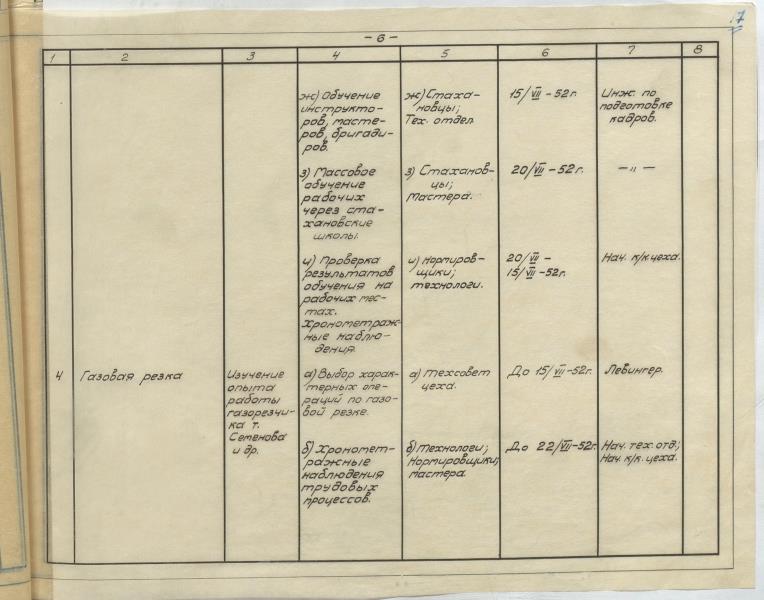 17
– 6 –
1 2 3 4 5 6 7 8
ж) Обучение
инструкто-
ров, масте-
ров, бригади-
ров.
ж) Стаха-
новцы;
Тех. отдел.
15/VII – 52г.
Инж. по
подготовке
кадров.
з) Массовое
обучение
рабочих
через ста-
хановские
школы.
з) Стаханов-
цы;
Мастера.
20/VII – 52г.
— " —
и) Проверка
результатов
обучения на
рабочих мес-
тах.
Хронометраж-
ные наблю-
дения.
и) Нормиров-
щики;
технологи.
20/VII –
15/VII – 52г.
Нач. к/к.цеха.
4
Газовая резка
Изучение
опыта
работы
газорезчи-
ка т.
Семенова
и др.
а) Выбор харак-
терных опе-
раций по газо-
вой резке.
а) Техсовет
цеха.
До 15/VII – 52г.
Левингер.
б) Хрономет-
ражные
наблюдения
трудовых
процессов.
б) Технологи;
Нормировщики;
мастера.
До 22/VII – 52г.
Нач. тех. отд;
Нач. к/к. цеха.